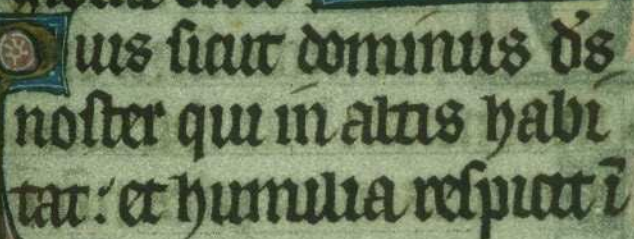 Quis sicut dominus ds̄
noster qui in altis habi
tat: et humilia respicit ī